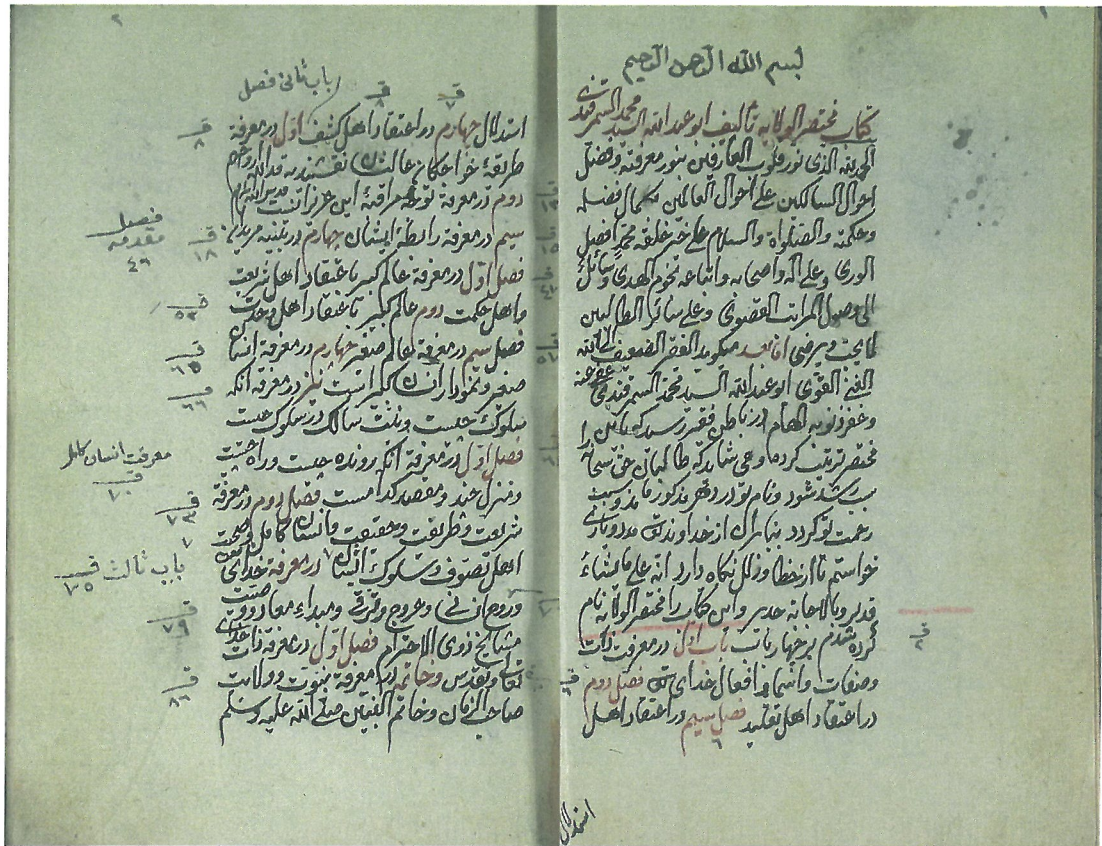 بسم الله الرحمن الرحيم
كتاب مختصر الولايه تأليف ابو عبد الله السيد محمد السمرقندى
الحمد لله الذى نور قلوب العارفين بنور معرفته وفضل
احوال السالكين على احوال العالمين بكمال فضله
وحكمته والصلواة والسلام على خير خلقه محمد افضل
الورى وعلى آله واصحابه واتباعه نجوم الهدى وسائل
الى وصول المراتب القصوى وعلى سائر الطالبين
كما يحب ويرضى اما بعد ميكويد الفقير الضعيف الى الله
الغنى القوى ابو عبد الله السيد محمد السمرقندى عفى عنه
وغفر ذنوبه الهام در باطن فقير رسيد كه را
مختصر ترتيب كرده مى شايد كه طالبان حق سبحانه
شود ونام تو در دهر مذكور ماند وسبب
رحمت تو كردد بنابران از خداوند تعالى مدد ويارى
خواستم تا از خطا وزلل نكاه دارد انه على ما يشاء
قدير وبالاجابة جدير واين كتاب را مختصر الولايه نام
كرده شدم بر چهار باب باب اول در معرفت ذات
وصفات واسما وافعال خداى تعالى فصل دوم
در اعتقاد اهل تقليد فصل سيم در اعتقاد اهل
٦
استدلال
٢
باب ثانى فصل
استدلال چهارم در اعتقاد اهل كشف اول در معرفة
طريقۀ خواجكان عاليشان نقشبنديه قدس الله ارواحهم
دوم در معرفة توجه مراقبۀ اين عزيزانست قدس الله اسرارهم
سيم در معرفة رابطۀ ايشان چهارم در تنبيه مريدان
فصل اول در معرفة عالم كبير باعتقاد اهل شريعت
واهل حكمت دوم عالم كبير باعتقاد اهل وحدت
فصل سيم در معرفة عالم صغير چهارم در معرفة انسان
صغير ونمودار انسان كبير است نيز در معرفة آنكه
سلوك چيست ونيت سالك در سلوك چيست
فصل اول در معرفة آنكه رونده چيست وراه چيست
ومنزل چند ومقصد كدامست فصل دوم در معرفة
شريعت وطريقت وحقيقت وانسان كامل وصحبت
اهل تصوف وسلوك ايشان در معرفة خداى
وروح انسانى وعروج وترقى ومبداء ومعاد
مشايخ ذوى الاحترام فصل اول در معرفة ذات خداى
تعالى وتقدس وخاتمه در معرفة نبوت وولايت
صاحب الزمان وخاتم النبيين صلى الله عليه وسلم
فصل
مقدمه
٤٦
معرفت انسان كامل
باب ثالث
٧٥
٧٩